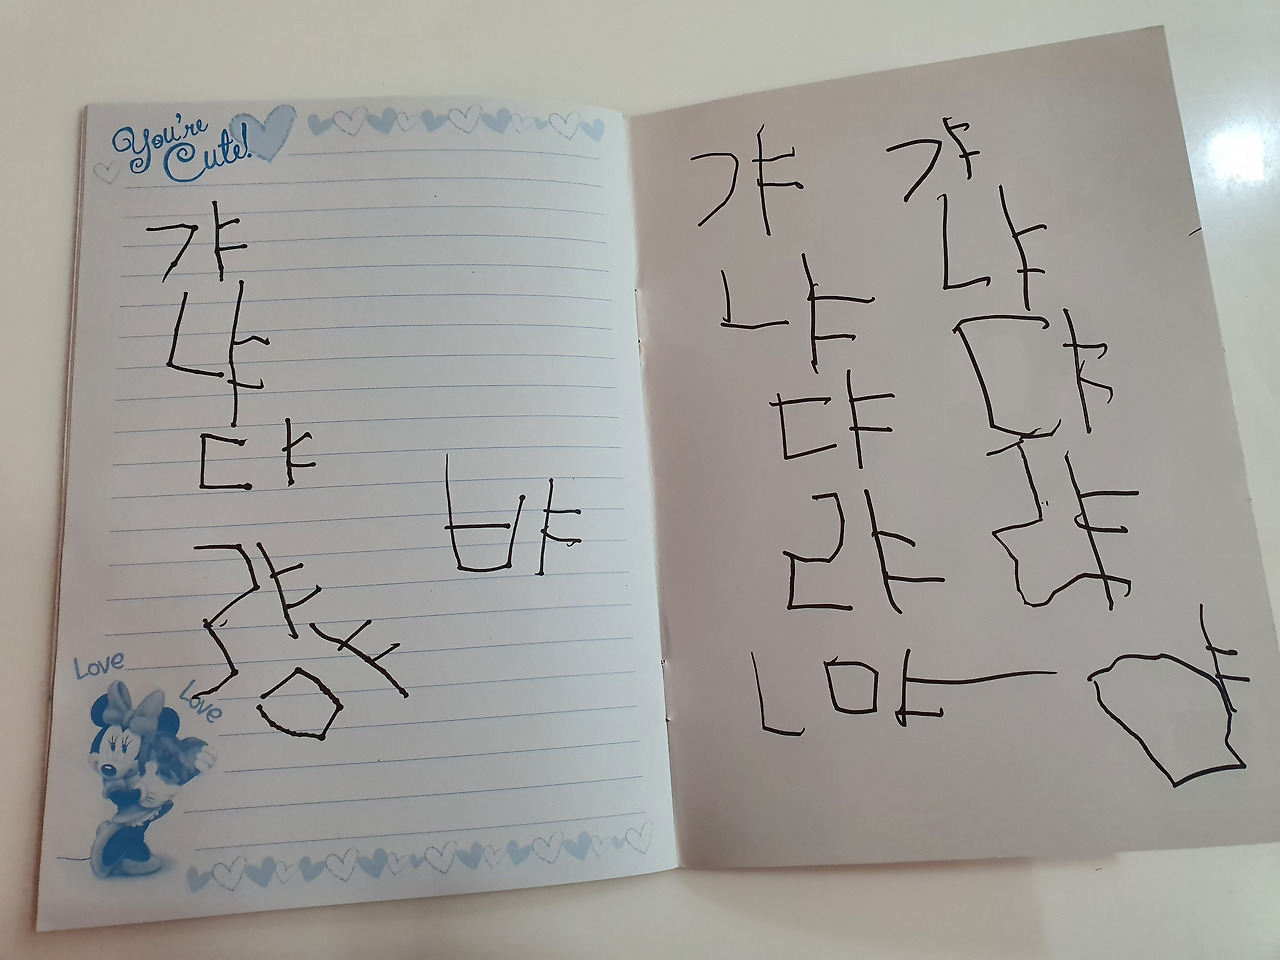 You're
Cute!
갸
냐
댜
랴
먀
뱌
Love
Love
갸 갸
냐 냐
댜 댜
랴 랴
ㄴ 먀 먀